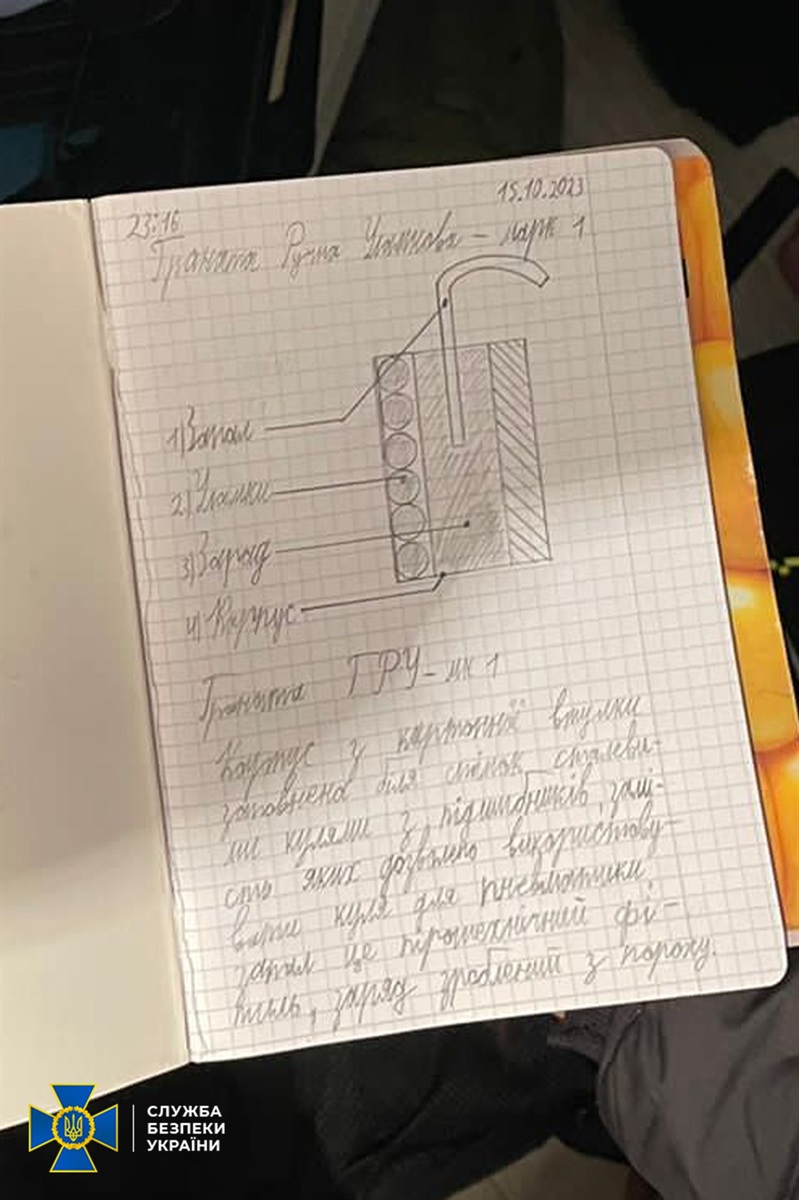 23:16
15.10.2023
Граната Ручна Уламкова – марк 1
1) Запал
2) Уламки
3) Заряд
4) Корпус
Граната ГРУ – мк 1
Корпус у картонної втулки
заповнена біля стінок сталеви-
ми кулями з підшибників, замі-
сть яких дозволено використову-
вати куля для пневматики,
запал це піротехнічний фі-
тиль, заряд зроблений з пороху.
СЛУЖБА
БЕЗПЕКИ
УКРАЇНИ